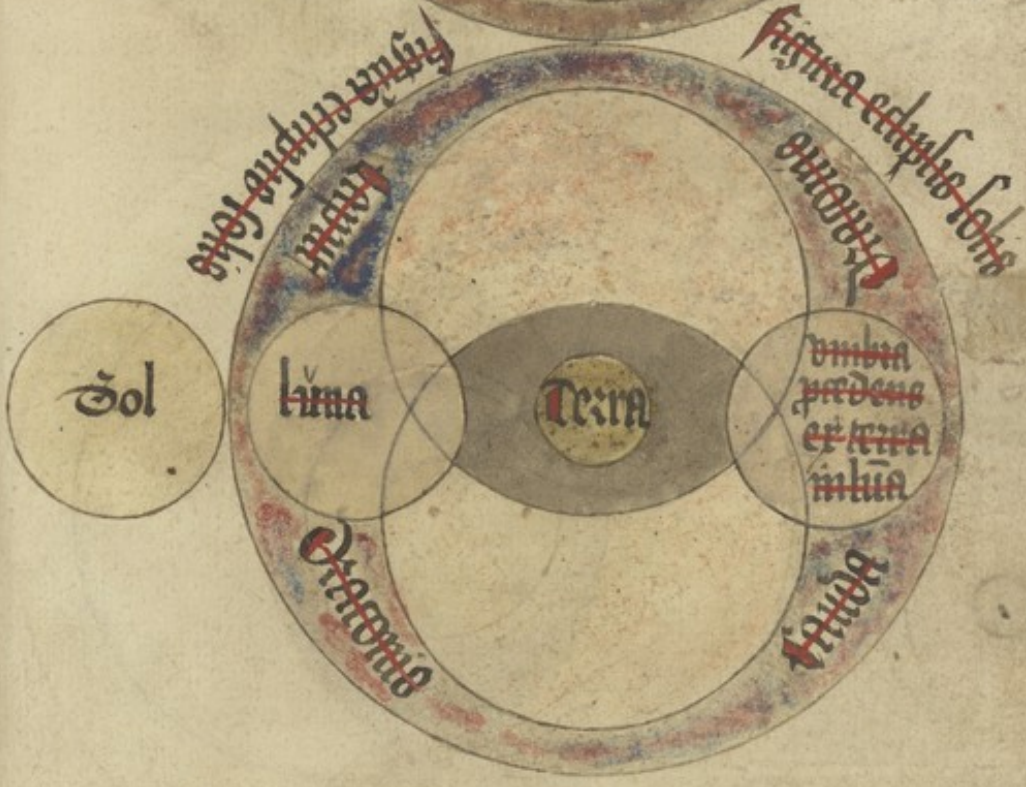 figura eclipsis solis
figura eclipsis solis
Draconis
Sol
luna
Terra
vmbra
ꝓcedens
ex terra
in lūa
Draconis
Cauda